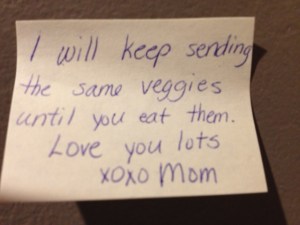 I will keep sending
the same veggies
until you eat them.
Love you lots
xoxo Mom